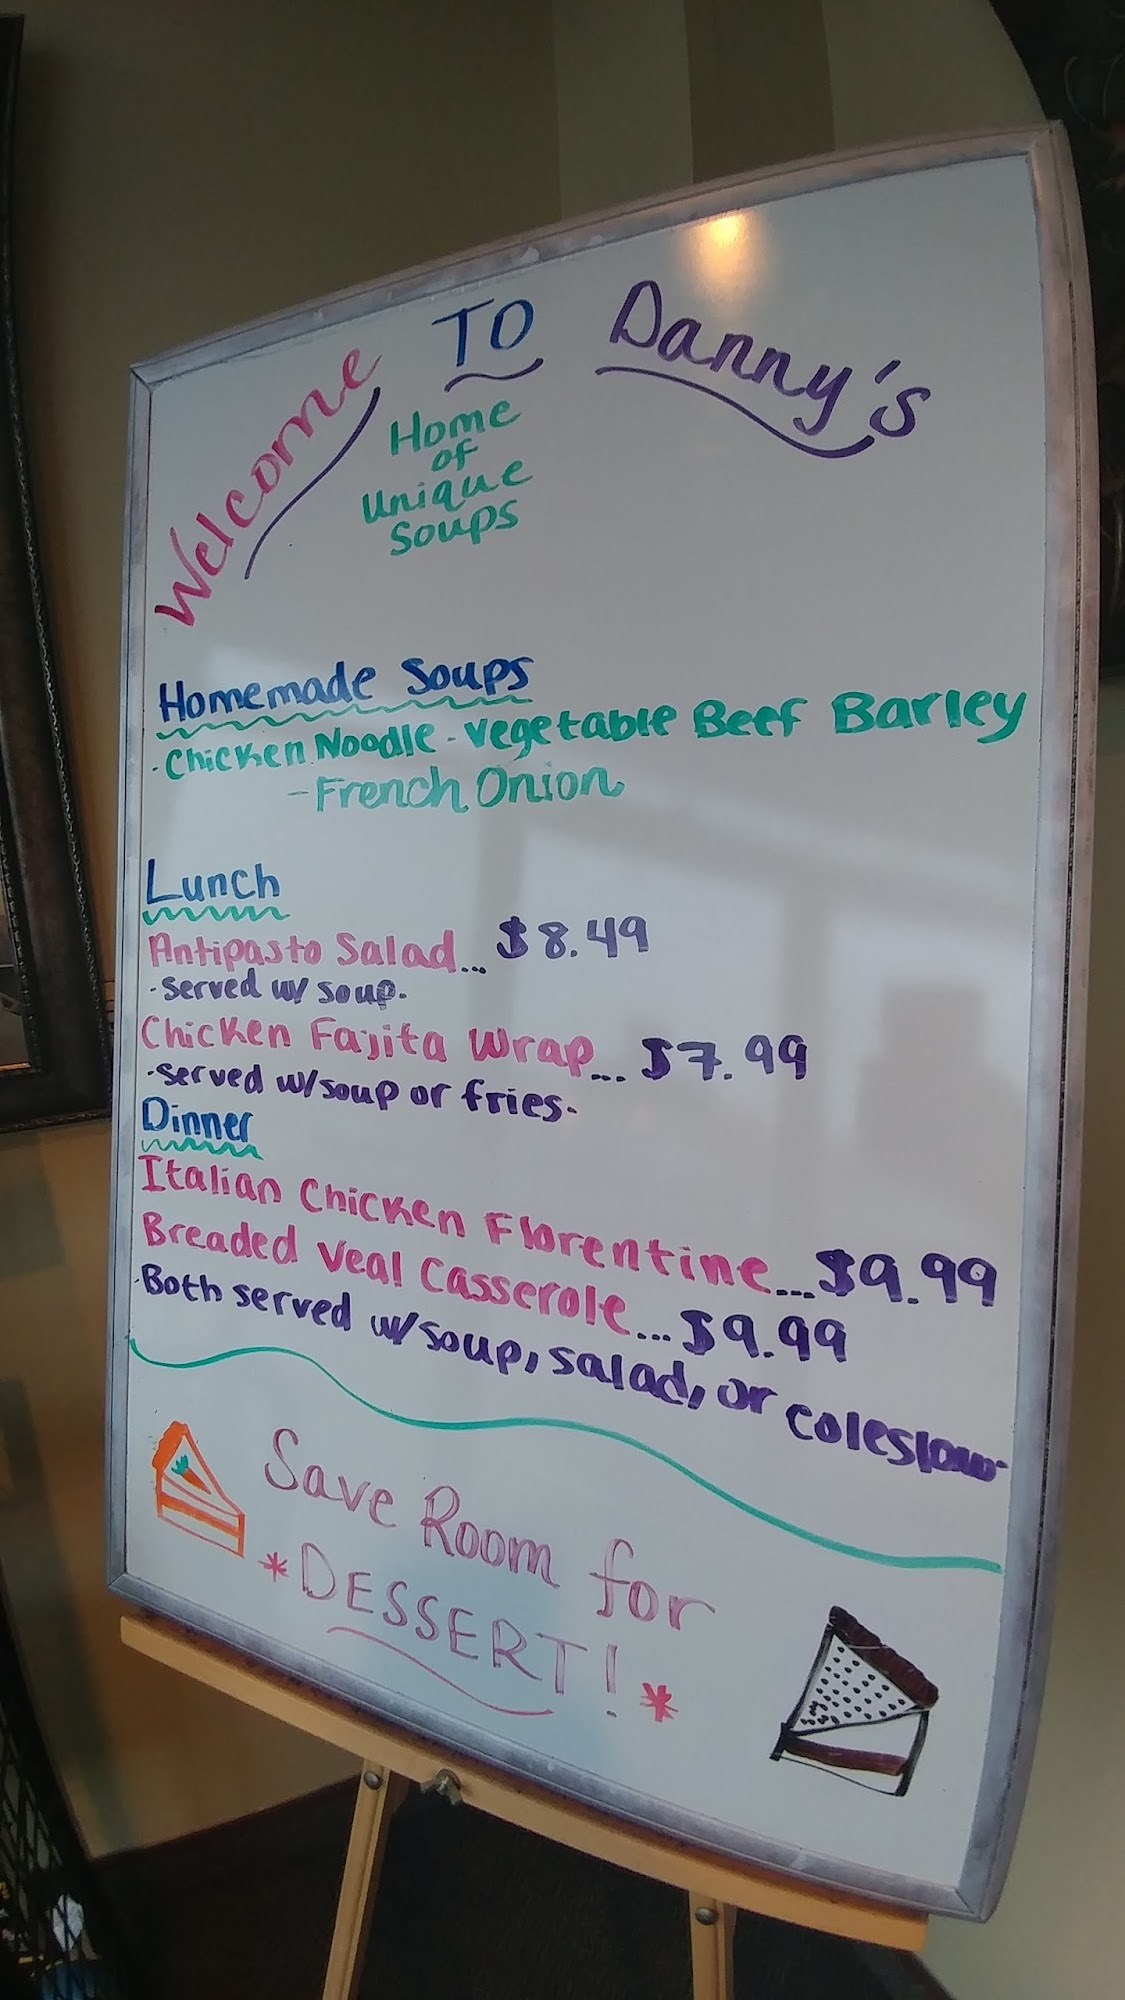 Welcome TO Danny's
Home
of
Unique
Soups
Homemade Soups
-Chicken Noodle -Vegetable Beef Barley
-French Onion
Lunch
Antipasto Salad... $8.49
-Served w/ soup-
Chicken Fajita Wrap... $7.99
-Served w/soup or fries-
Dinner
Italian Chicken Florentine... $9.99
Breaded Veal Casserole... $9.99
-Both served w/soup, salad, or coleslaw-
Save Room for
*DESSERT!*